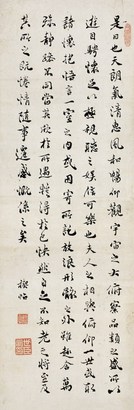 是日也天朗氣清惠風和暢仰觀宇宙之大俯察品類之盛所以
遊目騁懷足以極視聽之娛信可樂也夫人之相與俯仰一世或取
諸懷抱悟言一室之內或因寄所託放浪形骸之外雖趣舍萬
殊靜躁不同當其欣於所遇暫得於己快然自足不知老之將至及
其所之既倦情隨事遷感慨係之矣